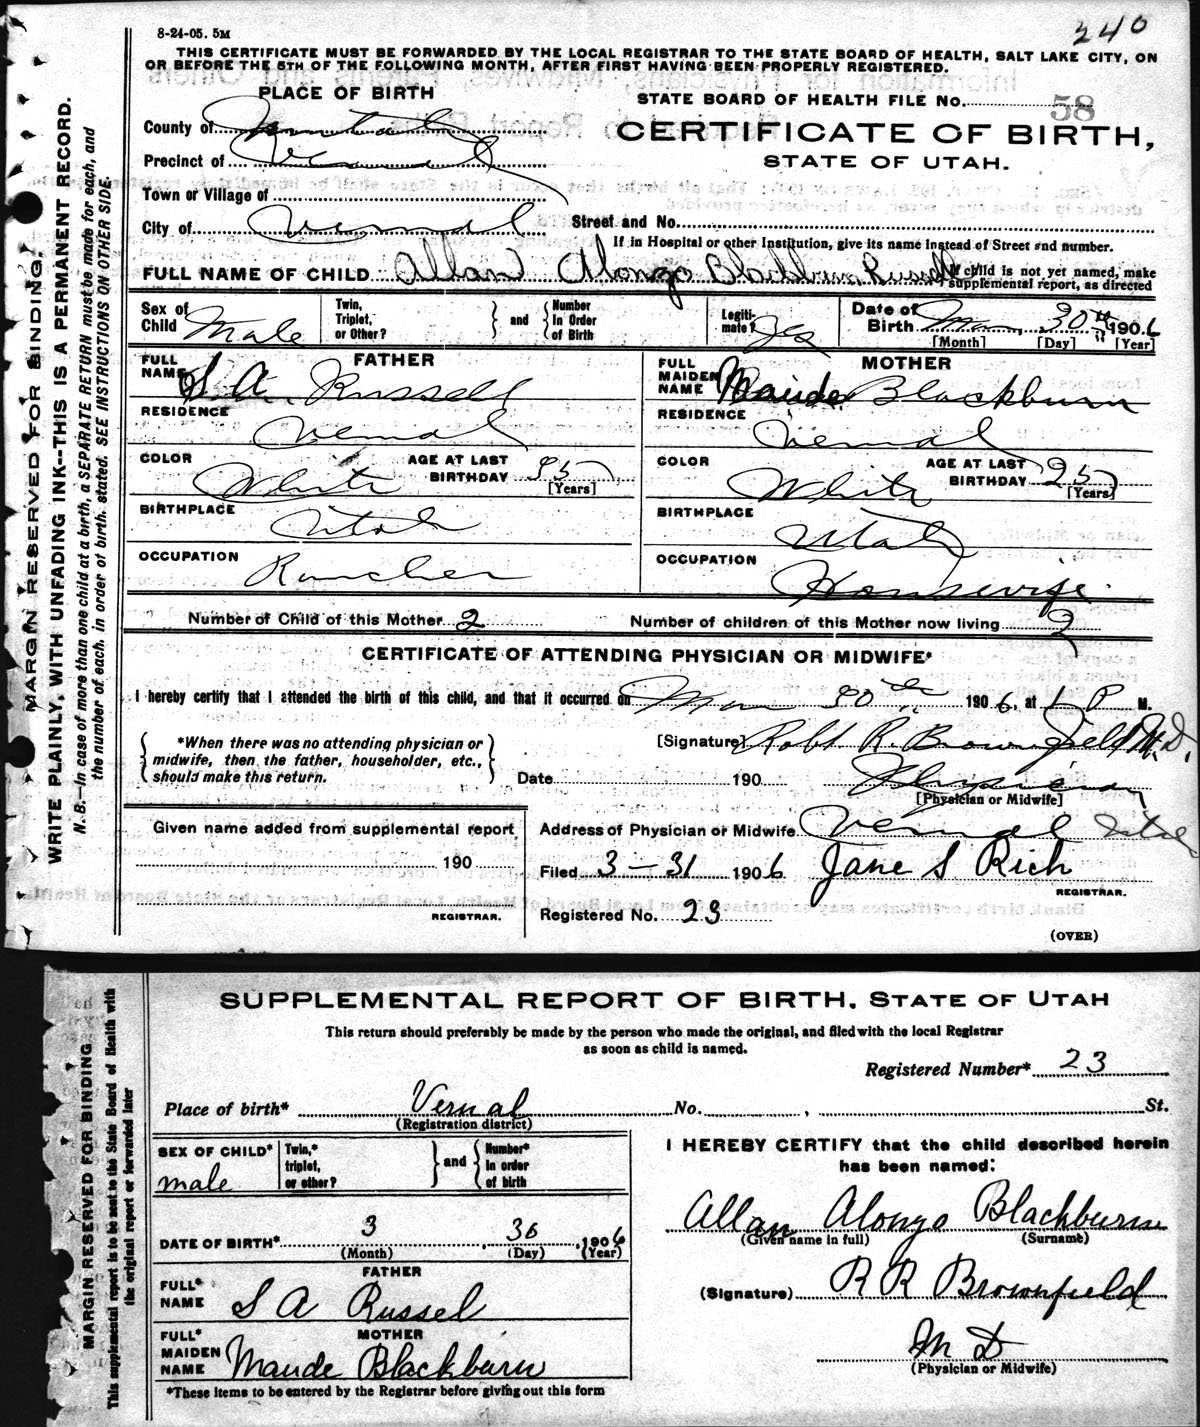 240
8-24-05. 5M
THIS CERTIFICATE MUST BE FORWARDED BY THE LOCAL REGISTRAR TO THE STATE BOARD OF HEALTH, SALT LAKE CITY, ON
OR BEFORE THE 5TH OF THE FOLLOWING MONTH, AFTER FIRST HAVING BEEN PROPERLY REGISTERED.
MARGIN RESERVED FOR BINDING.
WRITE PLAINLY, WITH UNFADING INK--THIS IS A PERMANENT RECORD.
N. B.—In case of more than one child at a birth, a SEPARATE RETURN must be made for each, and
the number of each, in order of birth, stated. SEE INSTRUCTIONS ON OTHER SIDE.
PLACE OF BIRTH
STATE BOARD OF HEALTH FILE No. 58
County of Uintah
CERTIFICATE OF BIRTH,
Precinct of Vernal
STATE OF UTAH.
Town or Village of
City of Vernal Street and No.
If in Hospital or other Institution, give its name instead of Street and number.
FULL NAME OF CHILD Allan Alonzo Blackburn Russell If child is not yet named, make
supplemental report, as directed
Sex of Child Male Twin, Triplet, or Other? } and { Number In Order of Birth Legiti- mate? Yes Date of Birth Mar 30th 1906
[Month] [Day] [Year]
FATHER MOTHER
FULL NAME S A Russell FULL MAIDEN NAME Maude Blackburn
RESIDENCE Vernal RESIDENCE Vernal
COLOR White AGE AT LAST BIRTHDAY 35 [Years] COLOR White AGE AT LAST BIRTHDAY 25 [Years]
BIRTHPLACE Utah BIRTHPLACE Utah
OCCUPATION Rancher OCCUPATION Housewife.
Number of Child of this Mother 2 Number of children of this Mother now living 2
CERTIFICATE OF ATTENDING PHYSICIAN OR MIDWIFE*
I hereby certify that I attended the birth of this child, and that it occurred on Mar 30th 1906, at 1 P M.
*When there was no attending physician or
midwife, then the father, householder, etc.,
should make this return.
[Signature] Robt R. Brownfield M.D.
Date 190 Physician
[Physician or Midwife]
Given name added from supplemental report
190
REGISTRAR.
Address of Physician or Midwife Vernal Utah
Filed 3-31 1906 Jane S Rich
REGISTRAR.
Registered No. 23
(OVER)
MARGIN RESERVED FOR BINDING
This supplemental report is to be sent to the State Board of Health with
the original report or forwarded later
SUPPLEMENTAL REPORT OF BIRTH, STATE OF UTAH
This return should preferably be made by the person who made the original, and filed with the local Registrar
as soon as child is named.
Registered Number* 23
Place of birth* Vernal No. , St.
(Registration district)
SEX OF CHILD* male Twin,* triplet, or other? } and { Number* in order of birth
DATE OF BIRTH* 3 30 1906
(Month) (Day) (Year)
FATHER
FULL* NAME S A Russel
MOTHER
FULL* MAIDEN NAME Maude Blackburn
*These items to be entered by the Registrar before giving out this form
I HEREBY CERTIFY that the child described herein
has been named:
Allan Alonzo Blackburn
(Given name in full) (Surname)
(Signature) R R Brownfield
M D
(Physician or Midwife)